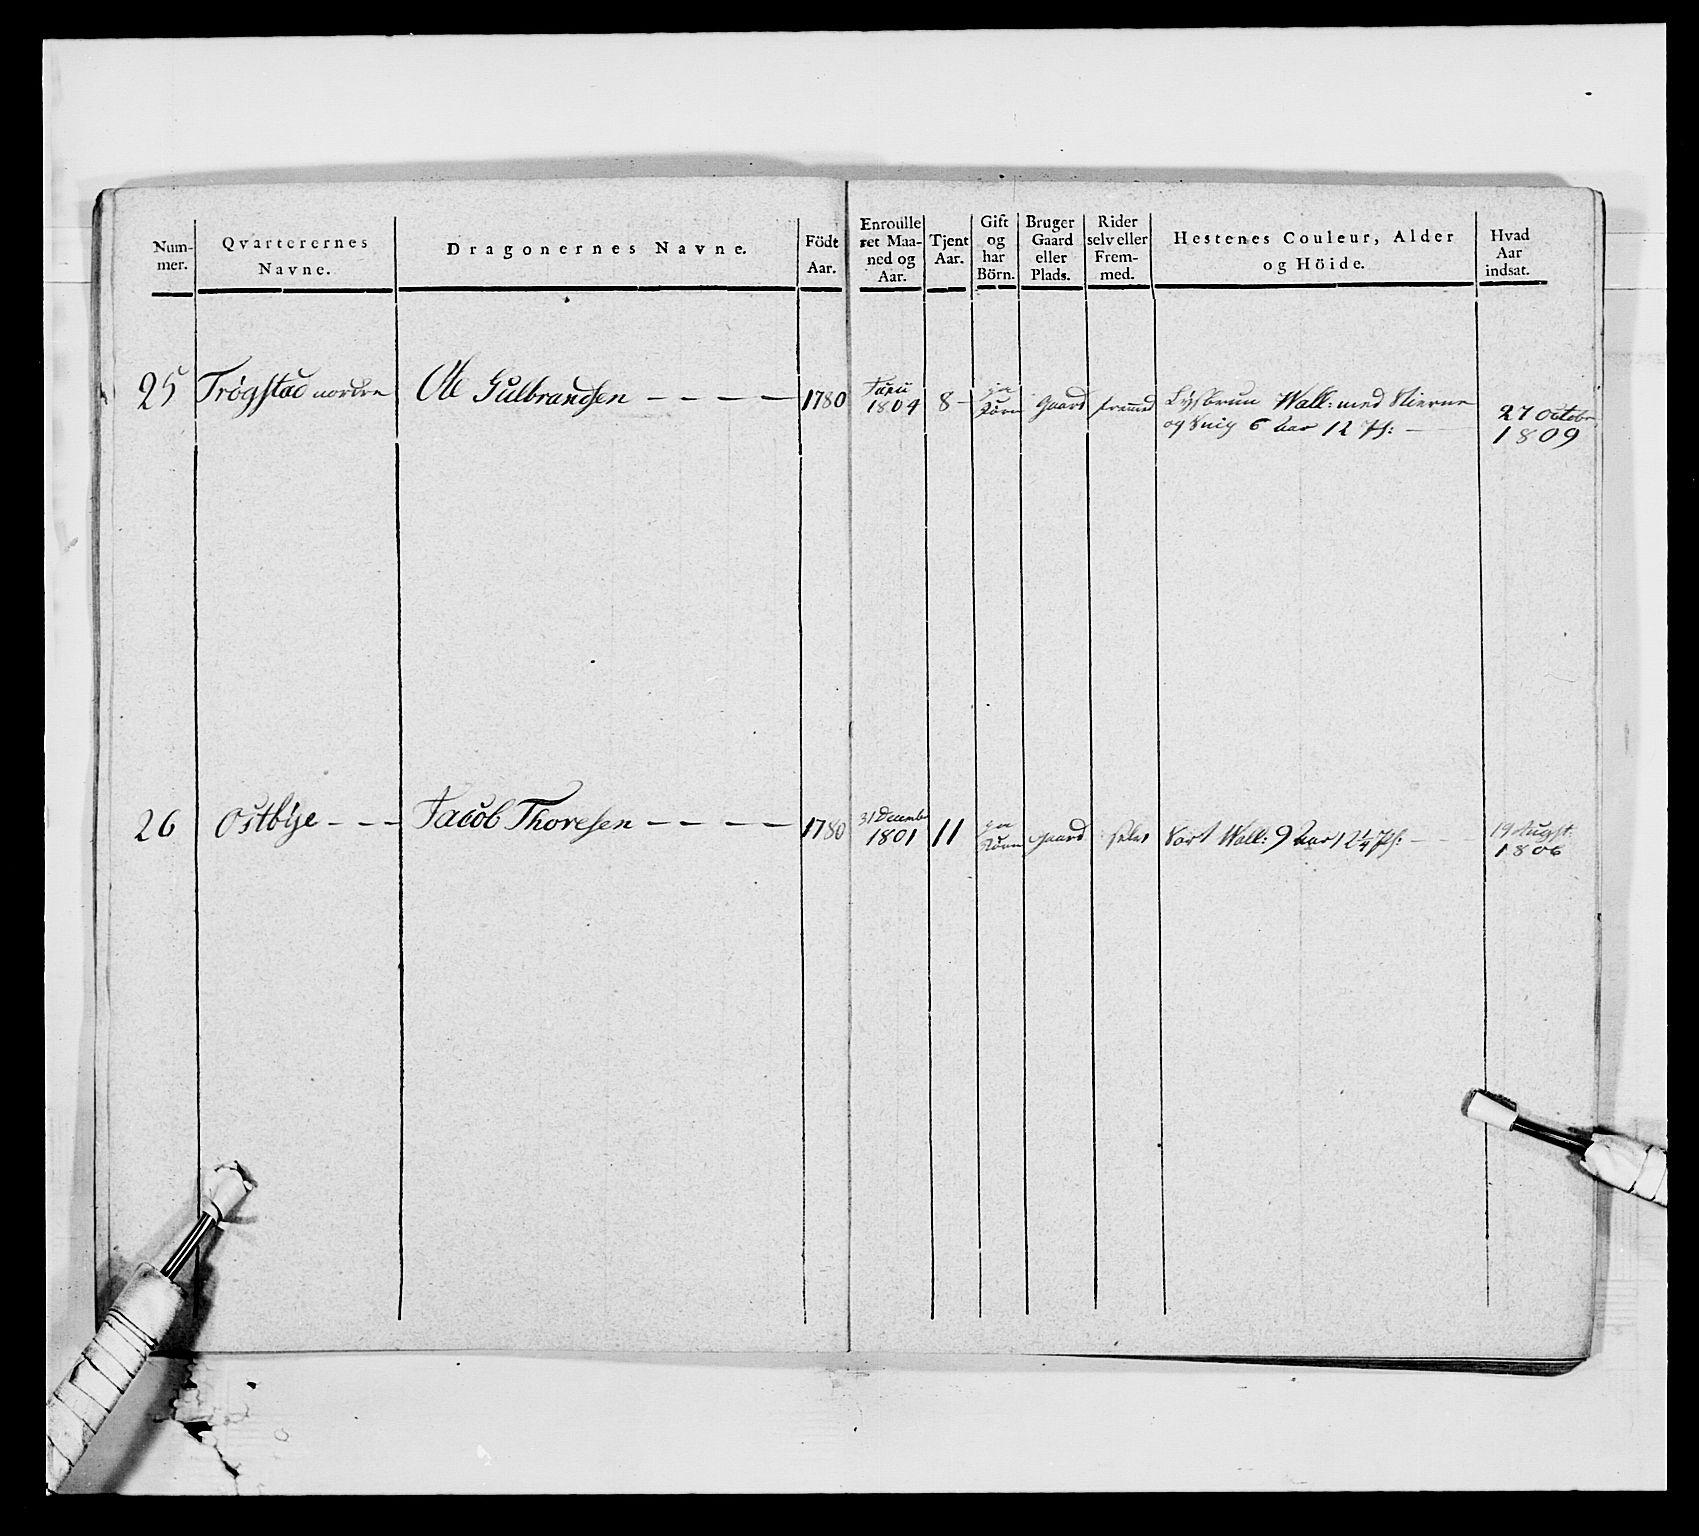 Num-
mer.
Qvarterernes
Navne.
Dragonernes Navne.
Födt
Aar.
Enroulle
ret Maa-
ned og
Aar.
Tjent
Aar.
Gift
og
har
Börn.
Bruger
Gaard
eller
Plads.
Rider
selv eller
Frem-
med.
Hestenes Couleur, Alder
og Höide.
Hvad
Aar
indsat.
25 Trögstad nordre Ole Gulbrandsen 1780
1804 8 Gaard fremed
Lysbrun Wall: med Stierne
og Snip 6 Aar 12 Pf:
27 Octobr
1809
26 Ostbye Jacob Thoresen 1780
31 Decembr
1801 11 Gaard selv Sort Wall: 9 Aar 12¼ Pf:
19 Augst:
1806